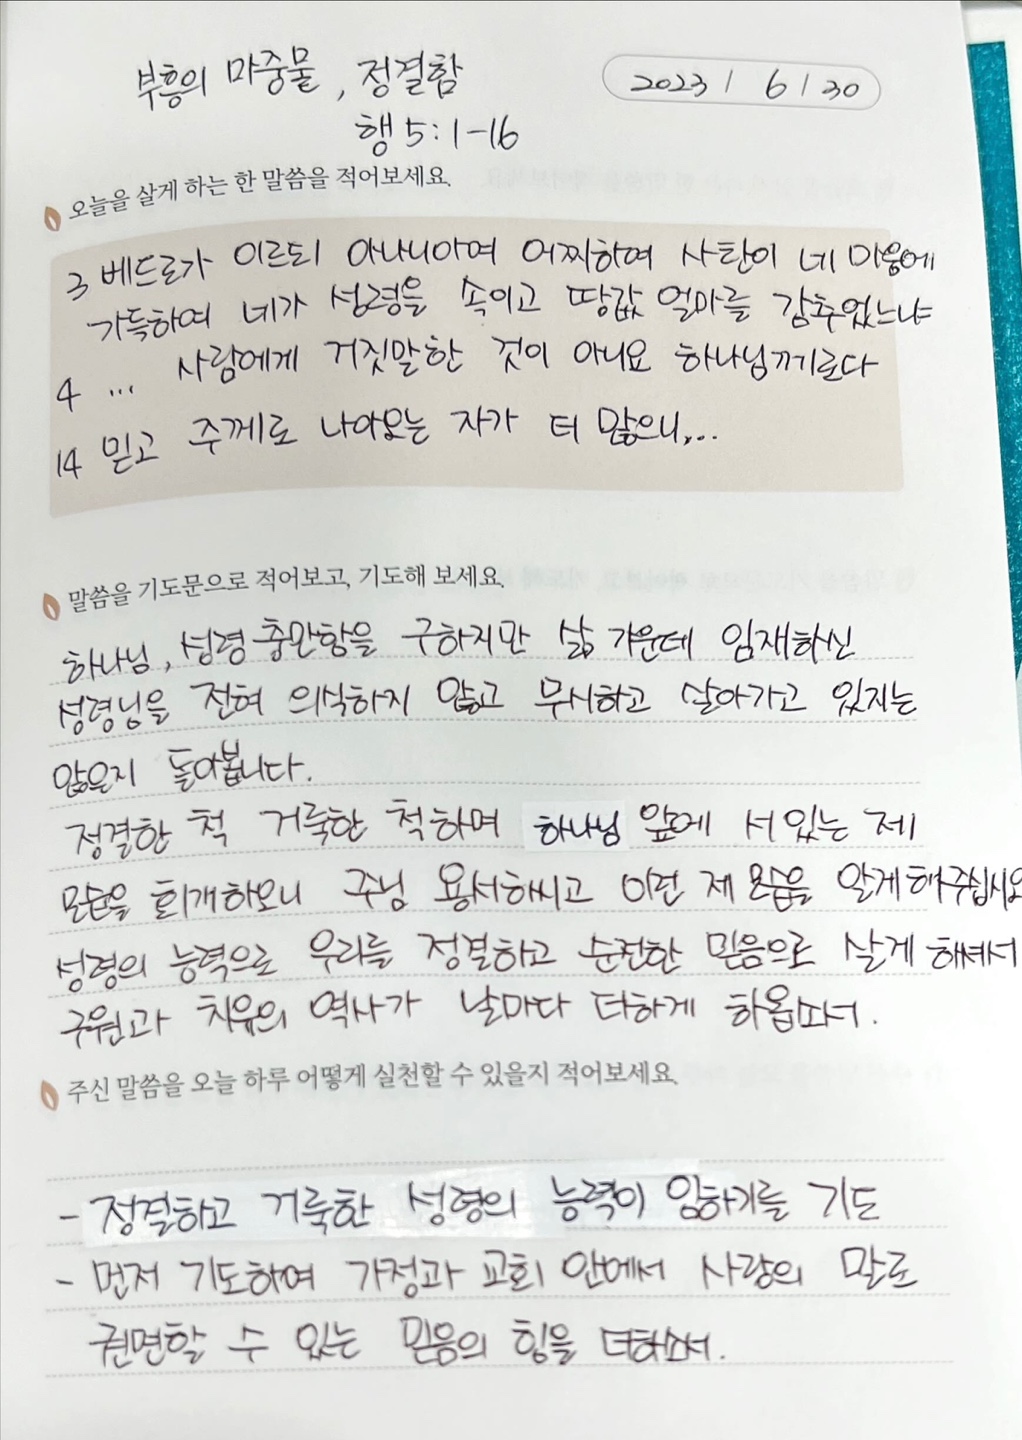 부흥의 마중물, 정결함
2023 / 6 / 30
행 5:1-16
오늘을 살게 하는 한 말씀을 적어보세요.
3 베드로가 이르되 아나니아여 어찌하여 사탄이 네 마음에
가득하여 네가 성령을 속이고 땅값 얼마를 감추었느냐
4 ... 사람에게 거짓말한 것이 아니요 하나님께로다
14 믿고 주께로 나아오는 자가 더 많으니,...
말씀을 기도문으로 적어보고, 기도해 보세요.
하나님, 성령충만함을 구하지만 삶 가운데 임재하신
성령님을 전혀 의식하지 않고 무시하고 살아가고 있지는
않은지 돌아봅니다.
정결한 척 거룩한 척하며 하나님 앞에 서있는 제
모습을 회개하오니 주님 용서하시고 이런 제 모습을 알게해주십시오
성령의 능력으로 우리를 정결하고 순전한 믿음으로 살게 하셔서
구원과 치유의 역사가 날마다 더하게 하옵소서.
주신 말씀을 오늘 하루 어떻게 실천할 수 있을지 적어보세요.
- 정결하고 거룩한 성령의 능력이 임하기를 기도
- 먼저 기도하여 가정과 교회 안에서 사랑의 말로
권면할 수 있는 믿음의 힘을 더하소서.